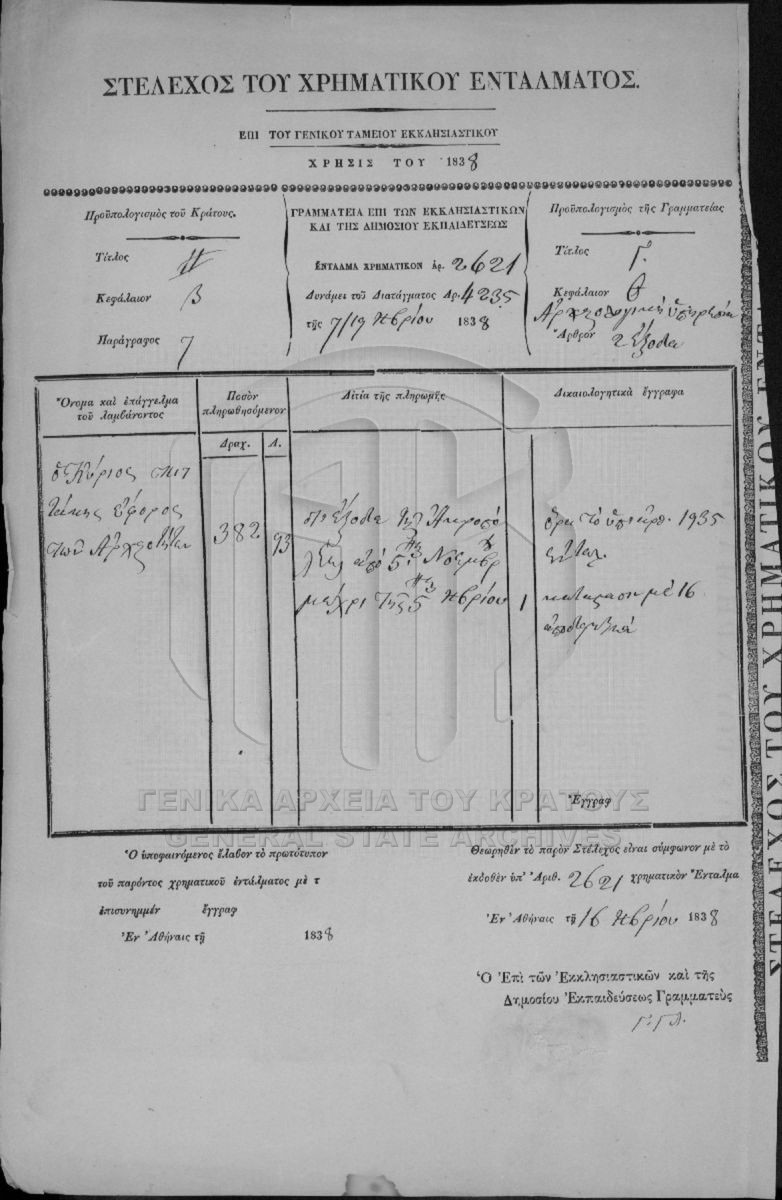 ΣΤΕΛΕΧΟΣ ΤΟΥ ΧΡΗΜΑΤΙΚΟΥ ΕΝΤΑΛΜΑΤΟΣ.
ΕΠΙ ΤΟΥ ΓΕΝΙΚΟΥ ΤΑΜΕΙΟΥ ΕΚΚΛΗΣΙΑΣΤΙΚΟΥ
ΧΡΗΣΙΣ ΤΟΥ 1838
Προϋπολογισμὸς τοῦ Κράτους.
Τίτλος
Κεφάλαιον 3
Παράγραφος 7
ΓΡΑΜΜΑΤΕΙΑ ΕΠΙ ΤΩΝ ΕΚΚΛΗΣΙΑΣΤΙΚΩΝ
ΚΑΙ ΤΗΣ ΔΗΜΟΣΙΟΥ ΕΚΠΑΙΔΕΥΣΕΩΣ
ΕΝΤΑΛΜΑ ΧΡΗΜΑΤΙΚΟΝ ἀρ. 2621
Δυνάμει τοῦ Διατάγματος Ἀρ. 4235
τῆς 7/19 Ἠβρίου 1838
Προϋπολογισμὸς τῆς Γραμματείας
Τίτλος Γ.
Κεφάλαιον θ
Ἀρχαιολογικὴ ὑπηρεσία
Ἄρθρον 2 Ἔξοδα
Ὄνομα καὶ ἐπάγγελμα
τοῦ λαμβάνοντος
Ποσὸν
πληρωθησόμενον
Δραχ. Λ.
Αἰτία τῆς πληρωμῆς
Δικαιολογητικὰ ἔγγραφα
ὁ Κύριος Πιτ
τάκης ἔφορος
τῶν Ἀρχαιοτήτων
382 93
δι' ἔξοδα τῆς Ἀκροπό
λεως ἀπὸ 5 Νοεμβρ
μέχρι τῆς 5 Ἠβρίου
1
ὅρα τὸ ὑπ' ἀρ. 1935
ἔνταλ.
κατάστασιν μὲ 16
ἀποδεικτικά
Ἔγγραφ
ΓΕΝΙΚΑ ΑΡΧΕΙΑ ΤΟΥ ΚΡΑΤΟΥΣ
GENERAL STATE ARCHIVES
Ὁ ὑποφαινόμενος ἔλαβον τὸ πρωτότυπον
τοῦ παρόντος χρηματικοῦ ἐντάλματος μὲ τ
ἐπισυνημμέν ἔγγραφ
Ἐν Ἀθήναις τῇ 1838
Θεωρηθὲν τὸ παρὸν Στέλεχος εἶναι σύμφωνον μὲ τὸ
ἐκδοθὲν ὑπ' Ἀριθ. 2621 χρηματικὸν Ἔνταλμα
Ἐν Ἀθήναις τῇ 16 Ἠβρίου 1838
Ὁ Ἐπὶ τῶν Ἐκκλησιαστικῶν καὶ τῆς
Δημοσίου Ἐκπαιδεύσεως Γραμματεὺς
Γ. Γλ.
ΣΤΕΛΕΧΟΣ ΤΟΥ ΧΡΗΜΑΤΙΚΟΥ ΕΝΤΑ